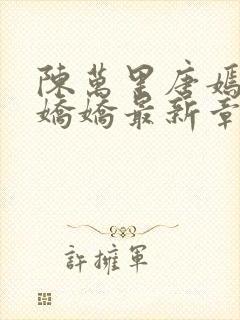 陳萬里唐嫣
嬌嬌最新章
許擁軍